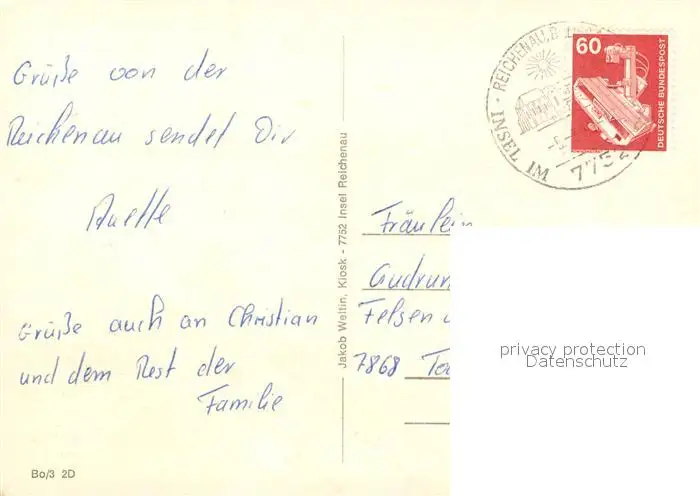 Grüße von der
Reichenau sendet Dir
Anette
Grüße auch an Christian
und dem Rest der
Familie
Bo/3 2D
Jakob Weltin, Kiosk - 7752 Insel Reichenau
REICHENAU, B
INSEL IM
7752
60
DEUTSCHE BUNDESPOST
Fräulein
Gudrun
Felsen
7868
privacy protection
Datenschutz